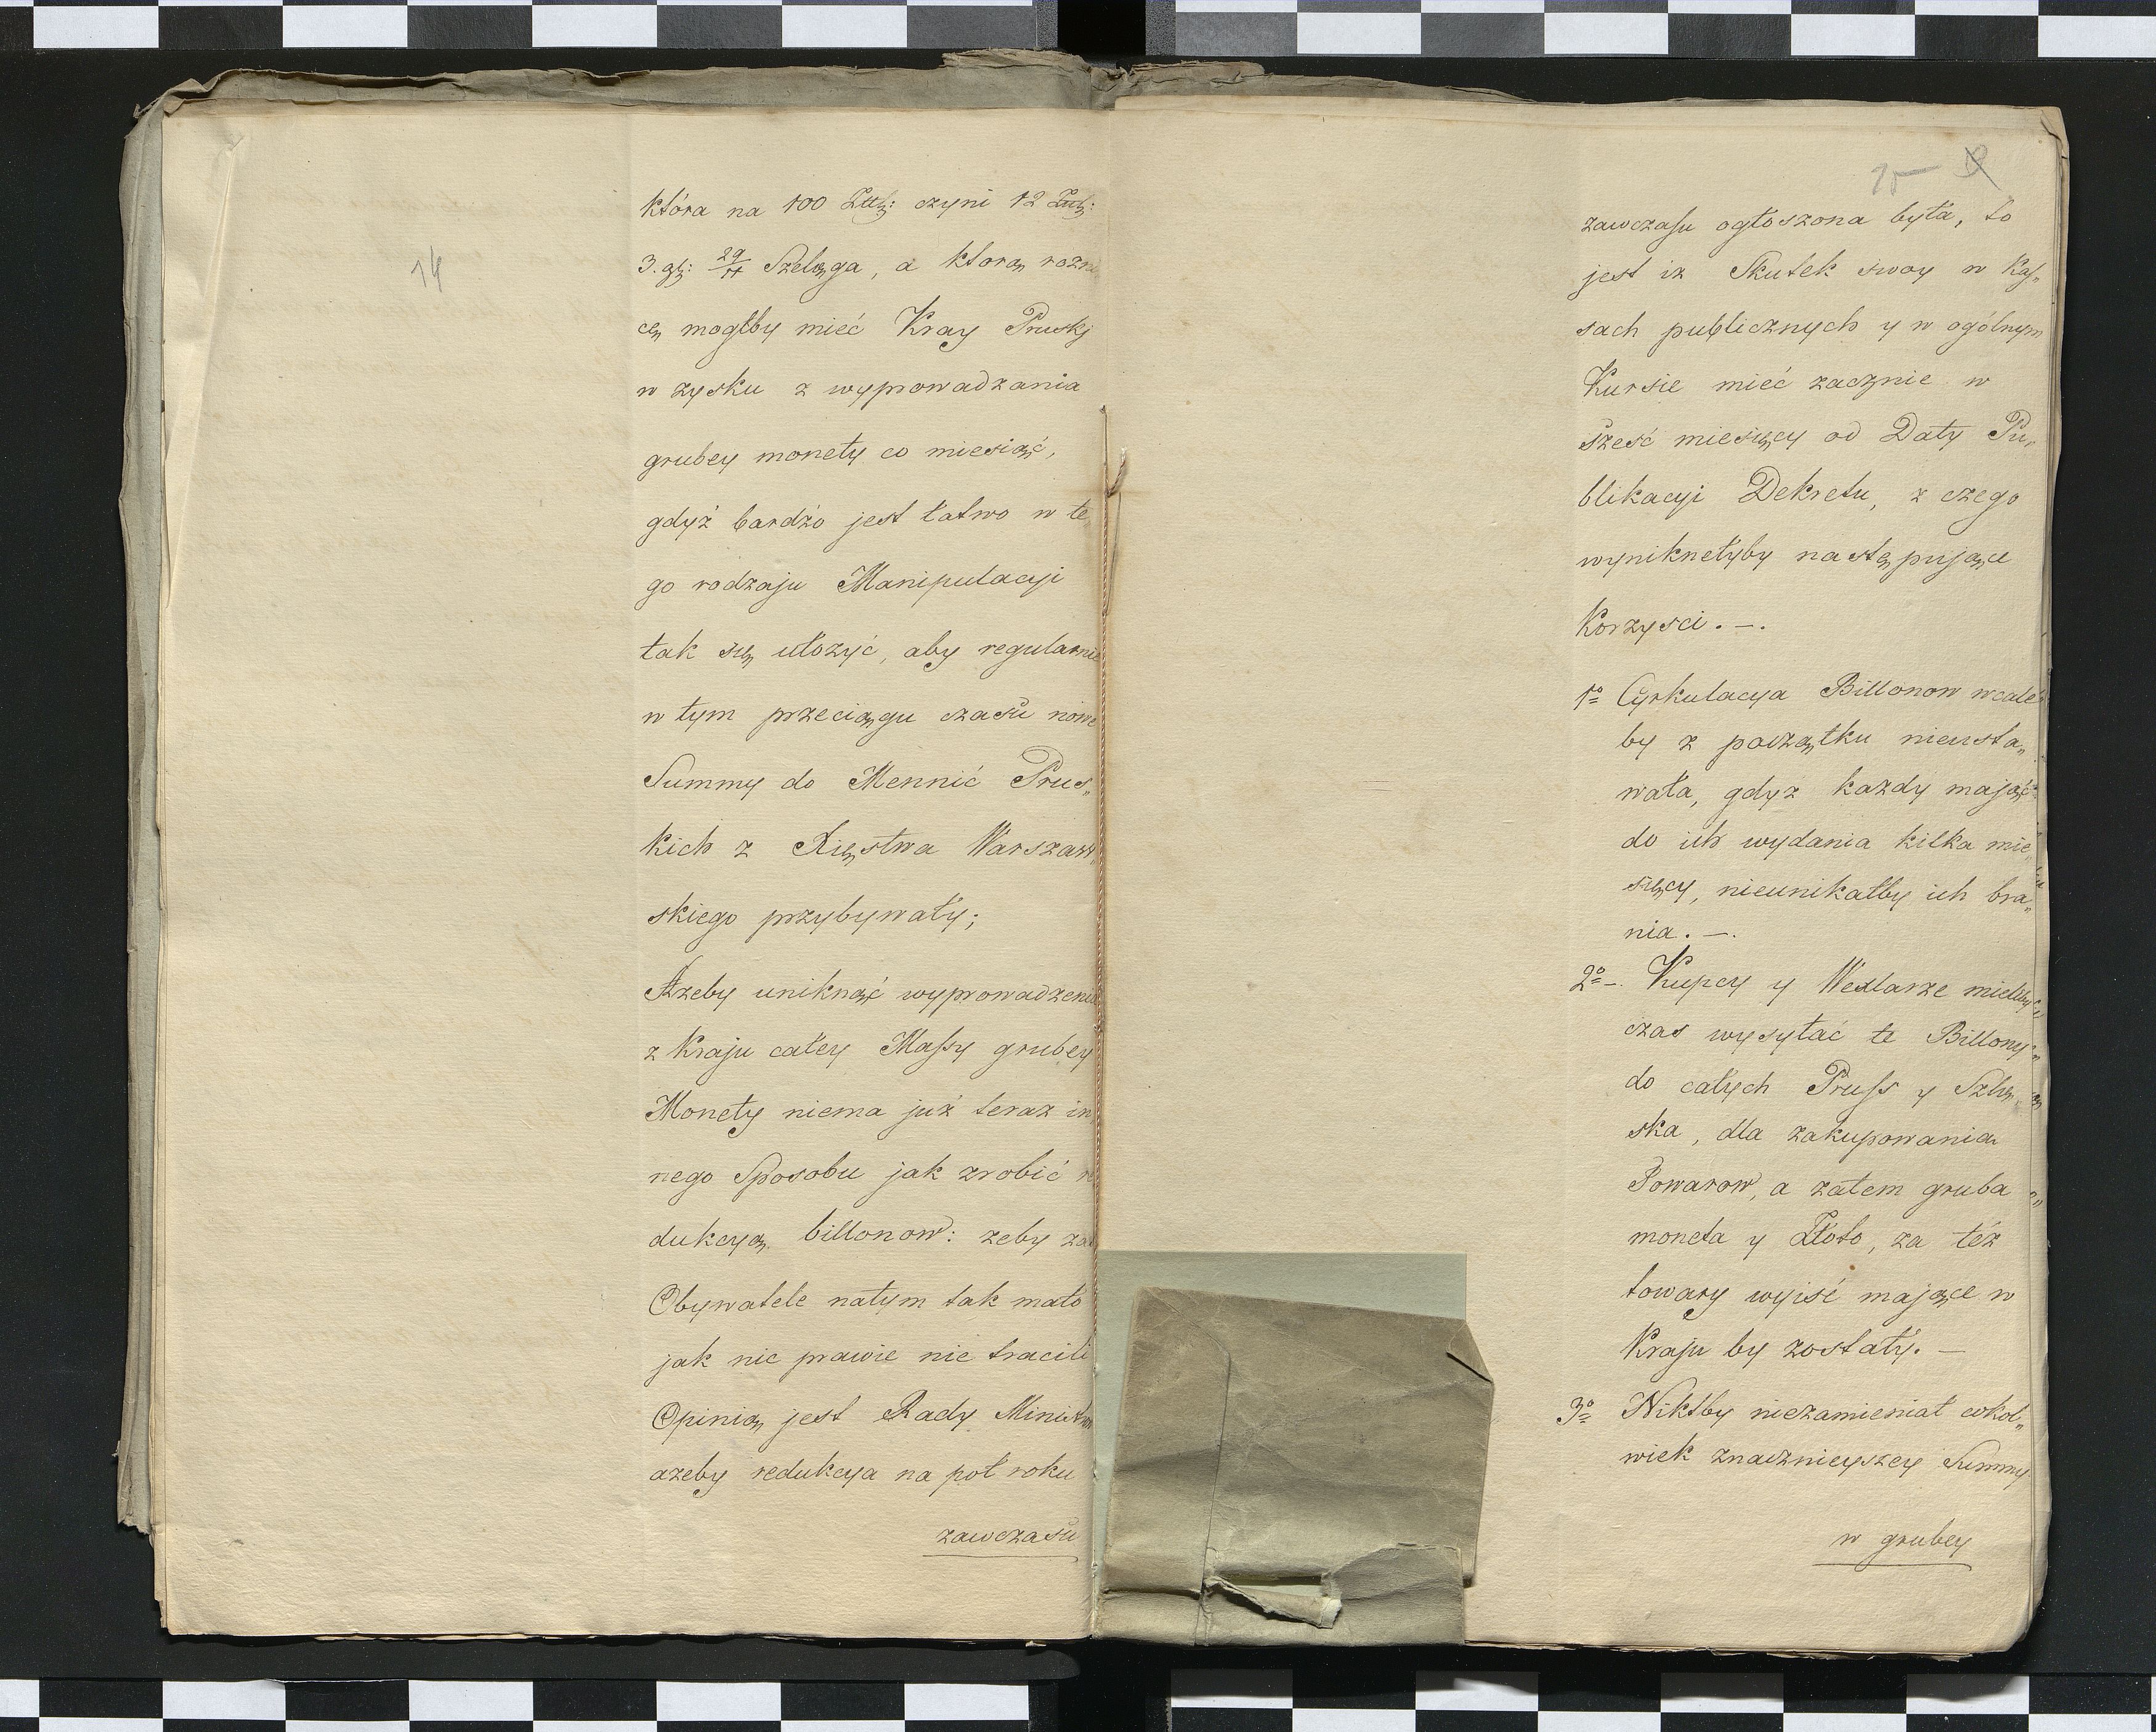 14
która na 100 Zttlg: czyni 12 Zttlg:
3. gl: 29/11 Szeląga, a ktorą rozni
cę mogłby mieć Kray Pruski
w zysku z wyprowadzania
grubey monety co miesiąć,
gdyż bardźo jest łatwo w te
go rodzaju Manipulacyi
tak się ułożyć, aby regularnie
w tym przeciągu czasu nowe
Summy do Mennić Prus„
kich z Xięstwa Warszaw„
skiego przybywały;
Ażeby uniknąć wyprowadzenia
z Kraju całey Massy grubey
Monety niema już teraz in
nego Sposobu jak zrobić re
dukcyą billonow: żeby zaś
Obywatele natym tak mało
jak nic prawie nie tracili
Opinią jest Rady Ministrow
ażeby redukcya na poł roku
zawczasu
15
zawczasu ogłoszona była, to
jest iż Skutek swoy w Kas„
sach publicznych y w ogólnym
Kursie mieć zacznie w
sześć miesięcy od Daty Pu„
blikacyi Dekretu, z czego
wyniknełyby następujące
Korzysci. —.
1º Cyrkulacya Billonow wcale
by z początku nieusta„
wała, gdyż każdy mająć
do ich wydania kilka mie„
sięcy, nieunikałby ich bra„
nia. —.
2º —. Kupcy y Wexlarze mieliby
czas wysyłać te Billony
do całych Pruss y Szlą„
ska, dla zakupowania
Towarow, a zatem gruba
moneta y Złoto, za téż
towary wyiść mające w
Kraju by zostały. —
3º Niktby niezamieniał cokol„
wiek znacznieyszey Summy
w grubey